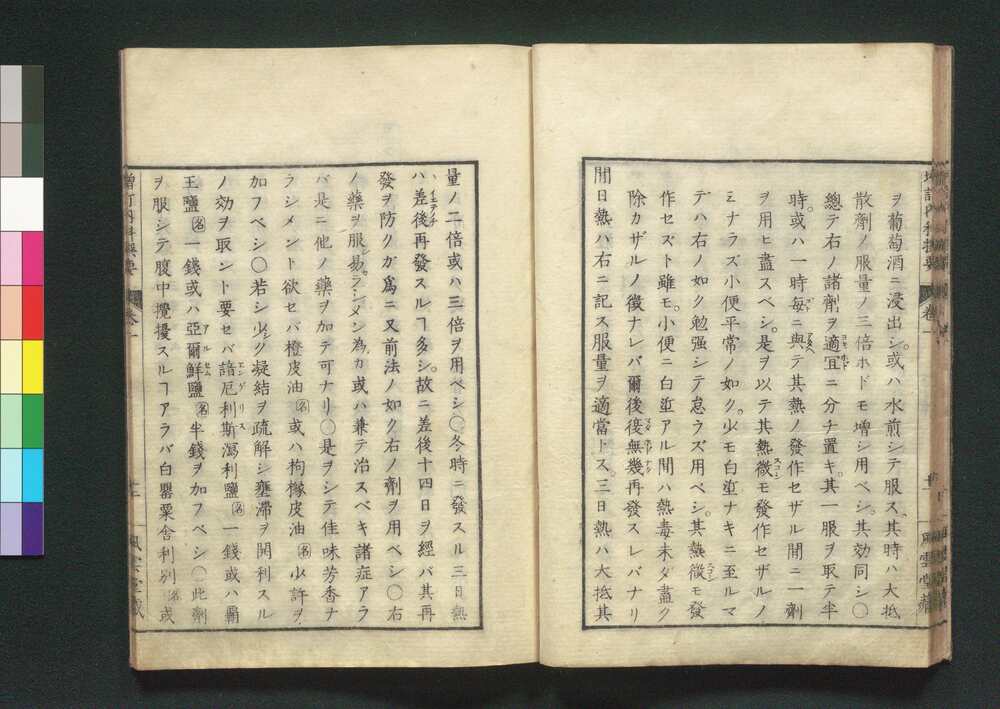 ヲ葡萄酒ニ浸出シ。或ハ水煎シテ服ス、其時ハ大抵
散劑ノ服量ノ三倍ホドモ増シ用ベシ。其効同シ〇
總テ右ノ諸劑ヲ適宜ニ分チ置キ。其一服ヲ取テ半
時。或ハ一時毎ニ與テ其熱ノ發作セザル間ニ一劑
ヲ用ヒ盡スベシ。是ヲ以テ其熱微モ發作セザルノ
ミナラズ小便平常ノ如ク。少モ白垽ナキニ至ルマ
デハ右ノ如ク勉强シテ怠ラズ用ベシ。其熱微モ發
作セズト雖モ。小便ニ白垽アル間ハ熱毒未ダ盡ク
除カザルノ徴ナレバ爾後復無幾再發スレバナリ
間日熱ハ右ニ記ス服量ヲ適當トス、三日熱ハ大抵其
量ノ二倍或ハ三倍ヲ用ベシ〇冬時ニ發スル三日熱
ハ差後再發スルヿ多シ。故ニ差後十四日ヲ經バ其再
發ヲ防クガ爲ニ又前法ノ如ク右ノ劑ヲ用ベシ〇右
ノ藥ヲ服シ易ラシメン爲カ或ハ兼テ治スベキ諸症アラ
バ是ニ他ノ藥ヲ加テ可ナリ〇是ヲシテ佳味芳香ナ
ラシメント欲セバ橙皮油名或ハ拘櫞皮油名少許ヲ
加フベシ〇若シ少ク凝結ヲ疏解シ壅滞ヲ開利スル
ノ効ヲ取ント要セバ諳厄利斯瀉利鹽名一錢或ハ覇
王鹽名一錢或ハ亞爾鮮鹽名半錢ヲ加フベシ〇此劑
ヲ服シテ腹中攪擾スルヿアラバ白罌粟舎利別名或
増訂内科撰要 巻一